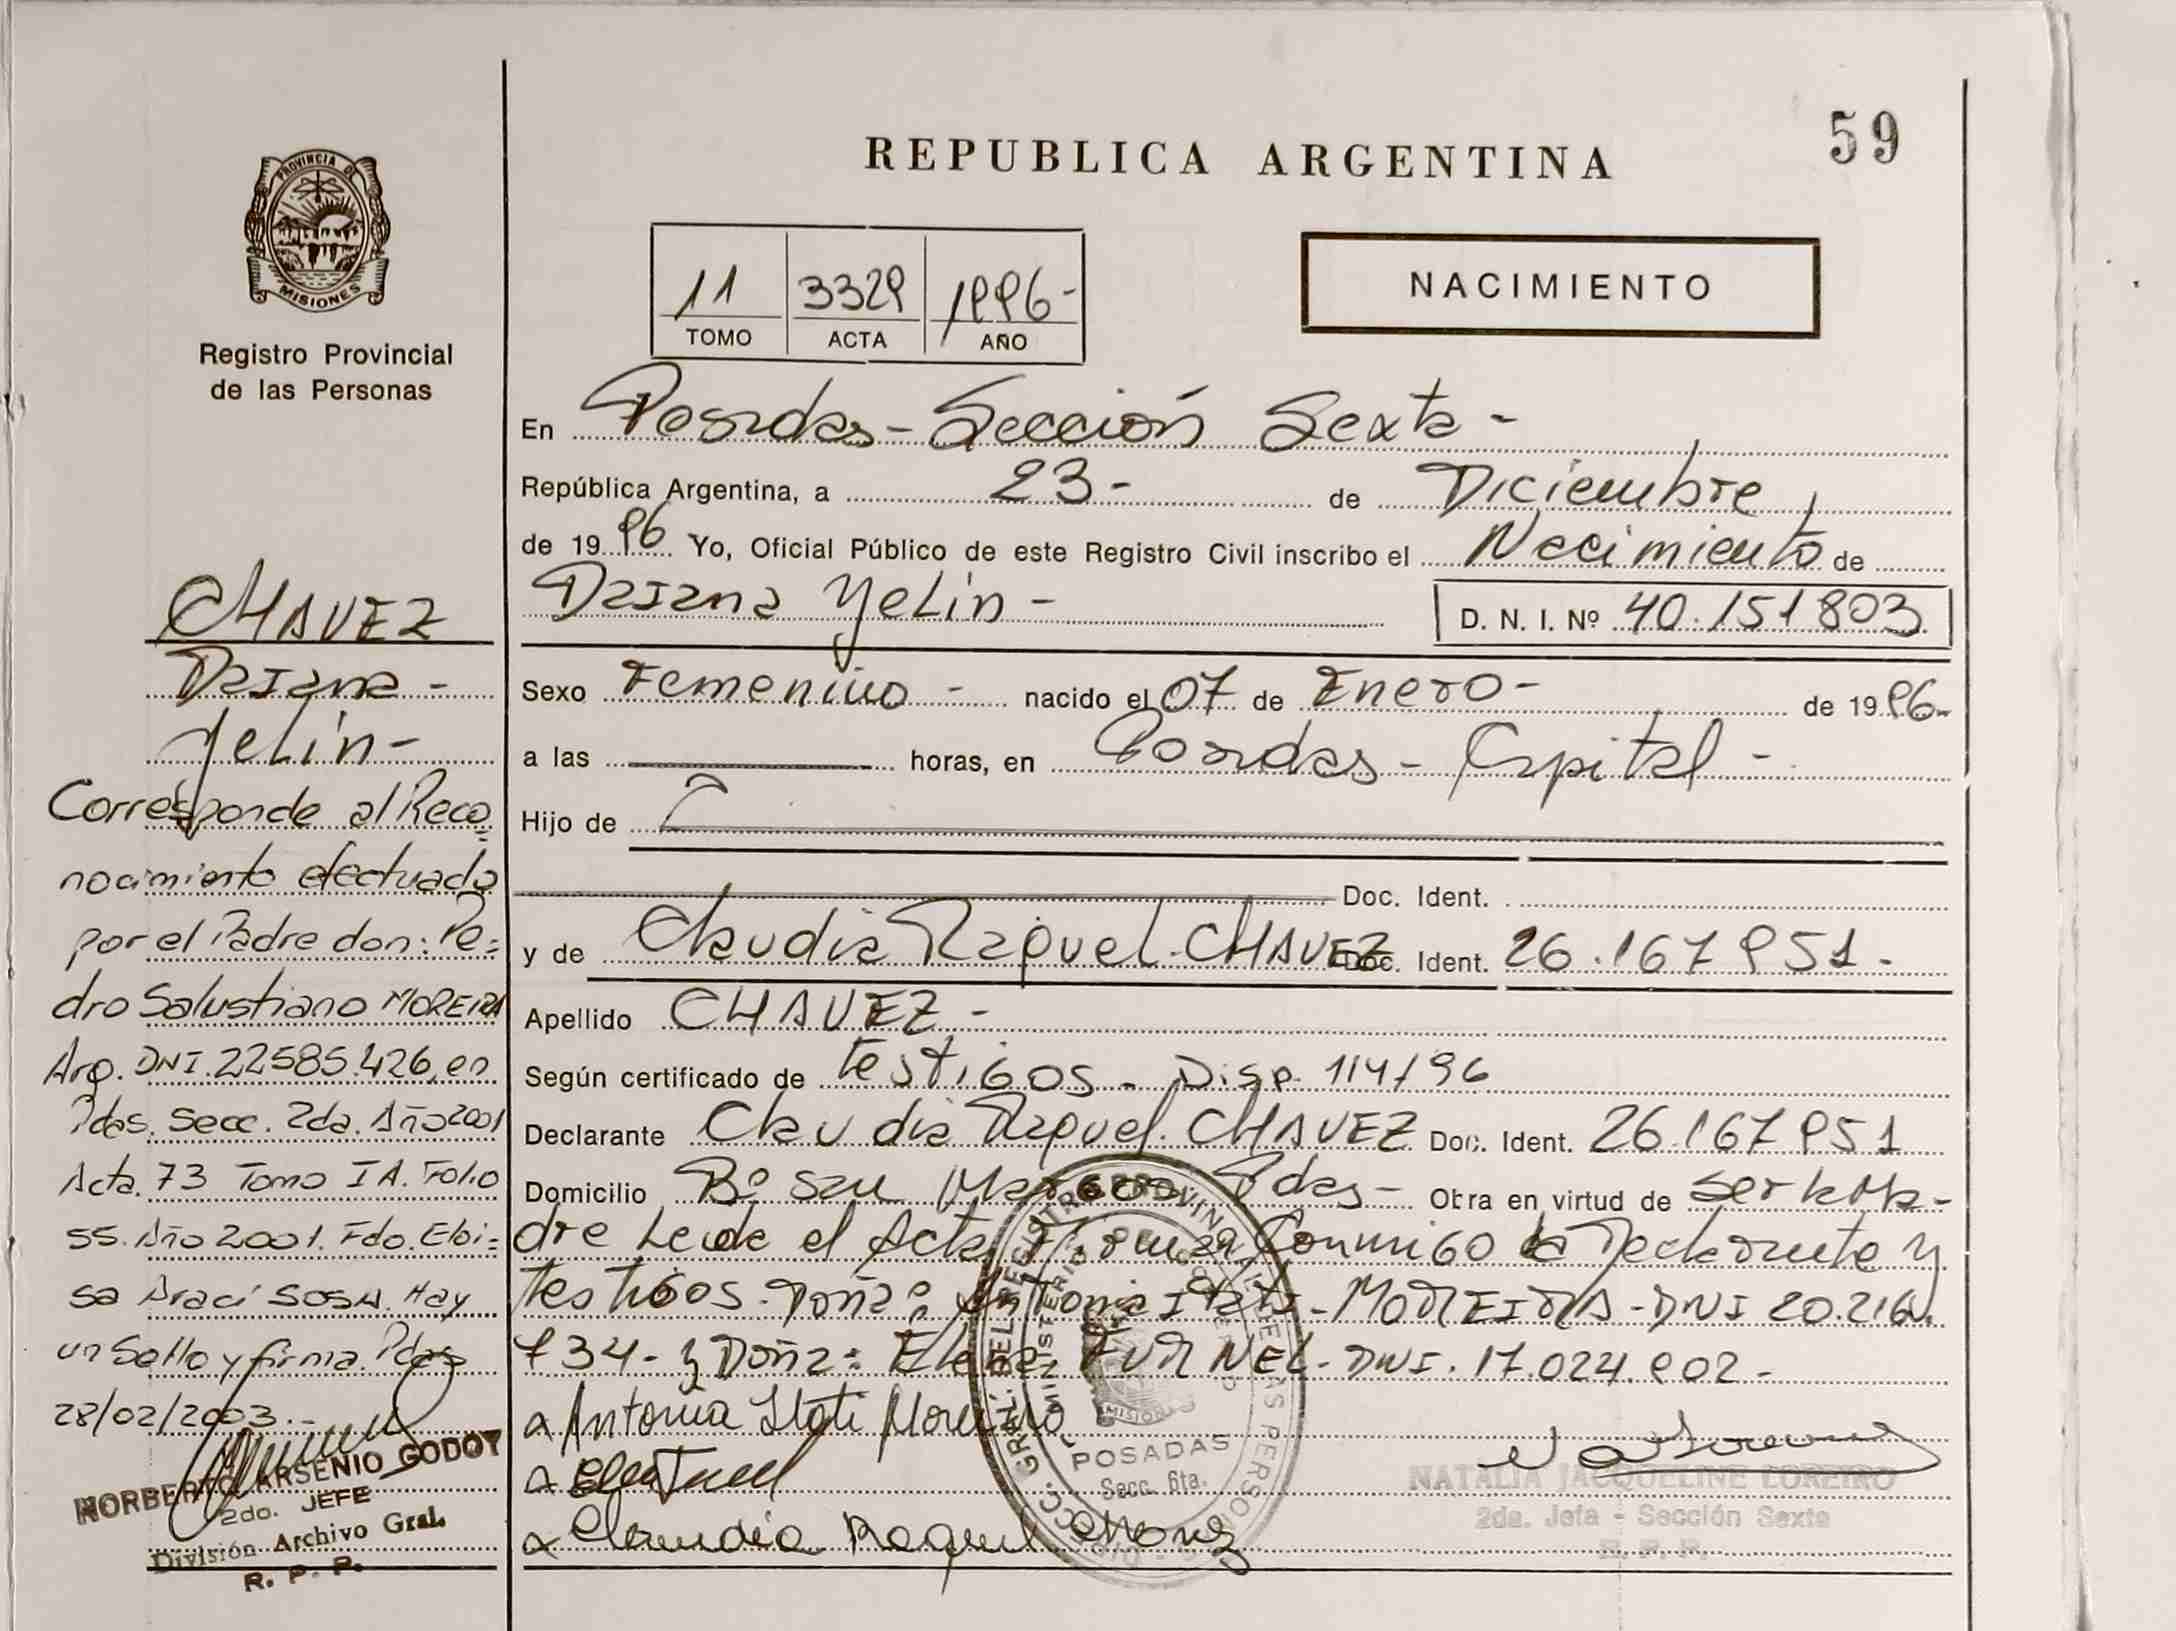 59
REPUBLICA ARGENTINA
PROVINCIA DE
MISIONES
Registro Provincial
de las Personas
11 3329 1996-
TOMO ACTA AÑO
NACIMIENTO
En Posadas - Sección Sexta -
República Argentina, a 23- de Diciembre
de 1996 Yo, Oficial Público de este Registro Civil inscribo el Nacimiento de
Daiana Yelin - D. N. I. Nº 40.151803
Sexo Femenino - nacido el 07 de Enero - de 1996-
a las horas, en Posadas - Capital -
Hijo de
Doc. Ident.
y de Claudia Raquel CHAVEZ Doc. Ident. 26.167951-
Apellido CHAVEZ -
Según certificado de testigos - Disp. 114/96
Declarante Claudia Raquel CHAVEZ Doc. Ident. 26.167951
Domicilio Bº San Marcos Pdas - Obra en virtud de ser la Ma-
dre Leida el Acta Firman Conmigo la Declarante y
testigos Doña: Antonia Itati - MOREIRA - DNI 20.216.
734- y Doña: Elena FURNEL - DNI. 17.024.902-
Antonia Itati Moreira
Claudia Raquel Chavez
POSADAS
Secc. 6ta.
NATALIA JACQUELINE LOREIRO
2da. Jefa - Sección Sexta
R. P. P.
CHAVEZ
Daiana -
Yelin -
Corresponde al Reco=
nocimiento efectuado
por el Padre don: Pe=
dro Salustiano MOREIRA
Arg. DNI. 22585.426, en
Pdas. Secc. 2da. Año 2001
Acta. 73 Tomo I A. Folio
55. Año 2001. Fdo. Eloi=
sa Araci SOSA. Hay
un Sello y firma. Pdas
28/02/2003.-
NORBERTO ARSENIO GODOY
2do. JEFE
División Archivo Gral.
R. P. P.